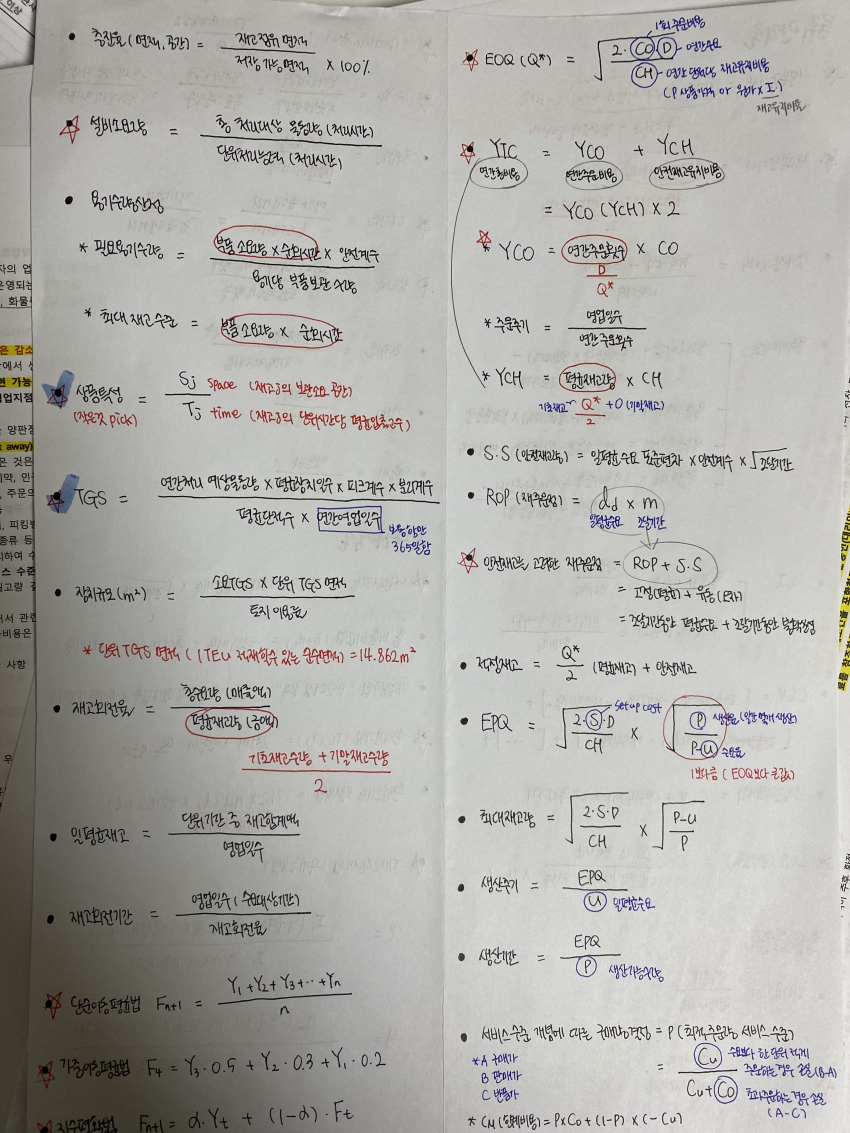 • 충진율 (면적, 공간) = 재고점유 면적 / 저장 가능면적 × 100%
설비소요량 = 총 처리대상 물동량 (처리시간) / 단위처리능력 (처리시간)
• 용기수량산정
* 필요용기수량 = 부품 소요량 × 순회시간 × 안전계수 / 용기당 부품 보관 수량
* 최대 재고수준 = 부품 소요량 × 순회시간
상품특성 = Sj / Tj
(작은것 pick)
space (재고j의 보관소요 공간)
time (재고j의 단위시간당 평균입출고수)
TGS = 연간처리 예상물동량 × 평균장치일수 × 피크계수 × 분리계수 / 평균단적수 × 연간영업일수
보통항만 365일함
• 장치규모(m²) = 소요TGS × 단위 TGS 면적 / 토지 이용률
* 단위 TGS 면적 (1TEU 적재할수 있는 순수면적) = 14.862m²
• 재고회전율 = 총수요량 (매출액) / 평균재고량 (금액)
기초재고수량 + 기말재고수량 / 2
• 일평균재고 = 단위기간 중 재고합계액 / 영업일수
• 재고회전기간 = 영업일수 (수요대상기간) / 재고회전율
단순이동평균법 Fn+1 = Y1+Y2+Y3+··+Yn / n
가중이동평균법 F4 = Y3·0.5 + Y2·0.3 + Y1·0.2
지수평활법 Fn+1 = α·Yt + (1-α)·Ft
EOQ (Q*) = √(2·CO·D / CH)
1회 주문비용
연간수요
연간 단위당 재고유지비용
(P 상품가격 or 원가 × I)
재고유지비율
YIC = YCO + YCH
연간총비용 연간주문비용 안전재고유지비용
= YCO (YCH) × 2
* YCO = 연간주문횟수 × CO
D / Q*
* 주문주기 = 영업일수 / 연간 주문횟수
* YCH = 평균재고량 × CH
기초재고 Q* / 2 + 0 (기말재고)
• S.S (안전재고량) = 일평균수요 표준편차 × 안전계수 × √조달기간
• ROP (재주문점) = dd × m
일평균수요 조달기간
안전재고를 고려한 재주문점 = ROP + S.S
= 고정(평균) + 유동(오차)
= 조달기간동안 평균수요 + 조달기간동안
• 적정재고 = Q* / 2 (평균재고) + 안전재고
• EPQ = √(2·S·D / CH) × √(P / P-U)
set up cost
생산율
수요율
1보다큼 (EOQ보다 큰값)
• 최대재고량 = √(2·S·D / CH) × √(P-U / P)
• 생산주기 = EPQ / U 일평균수요
• 생산기간 = EPQ / P 생산가능수량
• 서비스 수준 개념에 따른 구매량결정 = P (최적주문량 서비스 수준)
* A 구매가
B 판매가
C 반품가
= Cu / Cu + Co
수요보다 한 단위 적게 주문하는경우 손실 (B-A)
초과주문하는 경우 손실 (A-C)
* CM (한계비용) = P×Co + (1-P) × (-Cu)